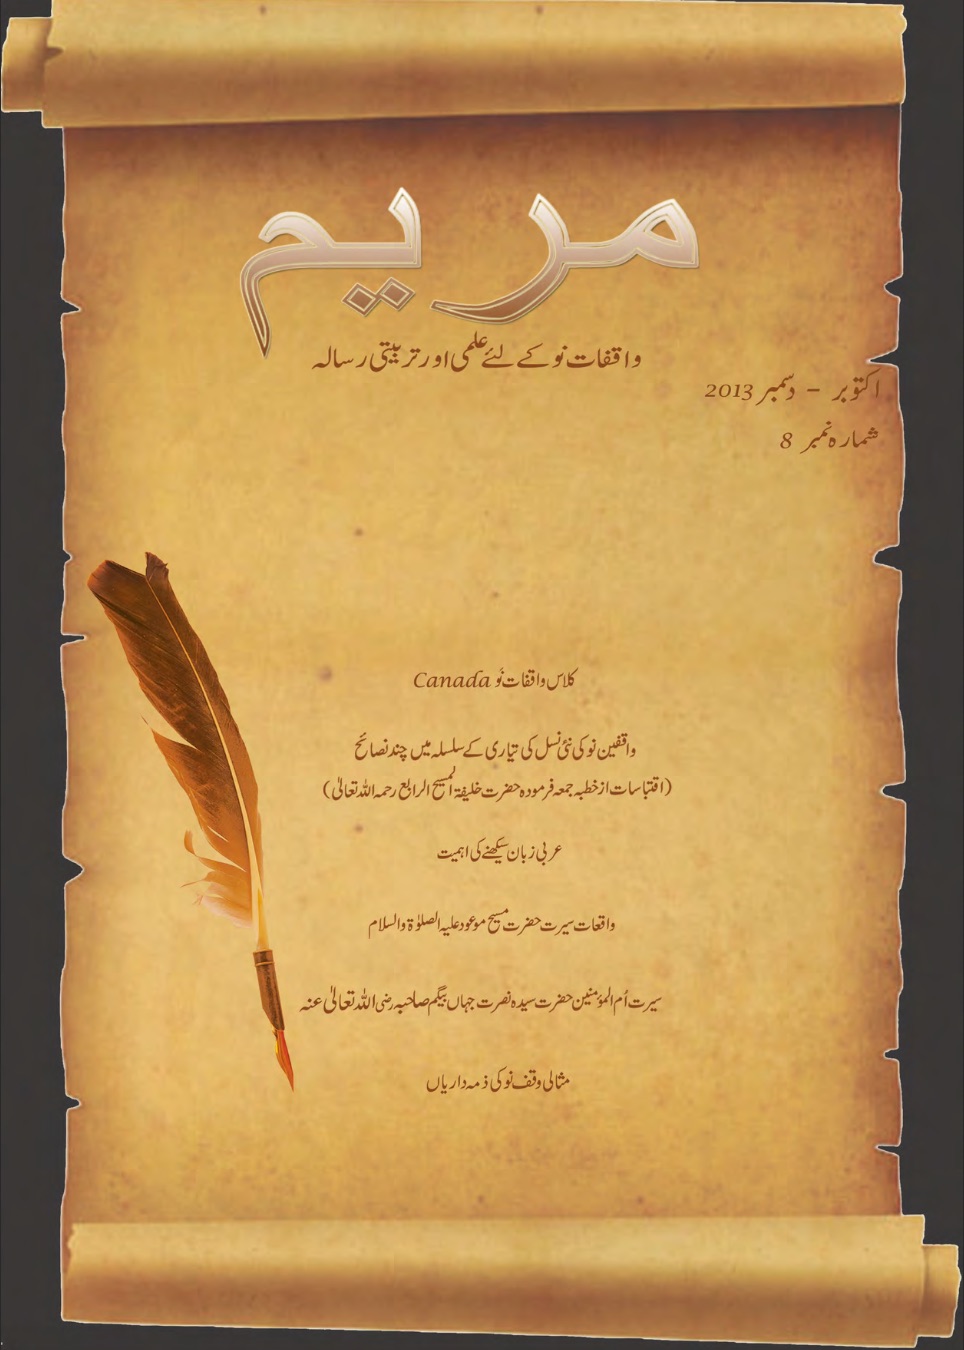 مریم
واقفات نو کے لئے علمی اور تربیتی رسالہ
اکتوبر – دسمبر 2013
شمارہ نمبر 8
کلاس واقفات نَو Canada
واقفین نو کی نئی نسل کی تیاری کے سلسلہ میں چند نصائح
(اقتباسات از خطبہ جمعہ فرمودہ حضرت خلیفۃ المسیح الرابع رحمہ اللہ تعالیٰ)
عربی زبان سیکھنے کی اہمیت
واقعات سیرت حضرت مسیح موعود علیہ الصلوٰۃ والسلام
سیرت اُم المؤمنین حضرت سیدہ نصرت جہاں بیگم صاحبہ رضی اللہ تعالیٰ عنہ
مثالی وقف نو کی ذمہ داریاں